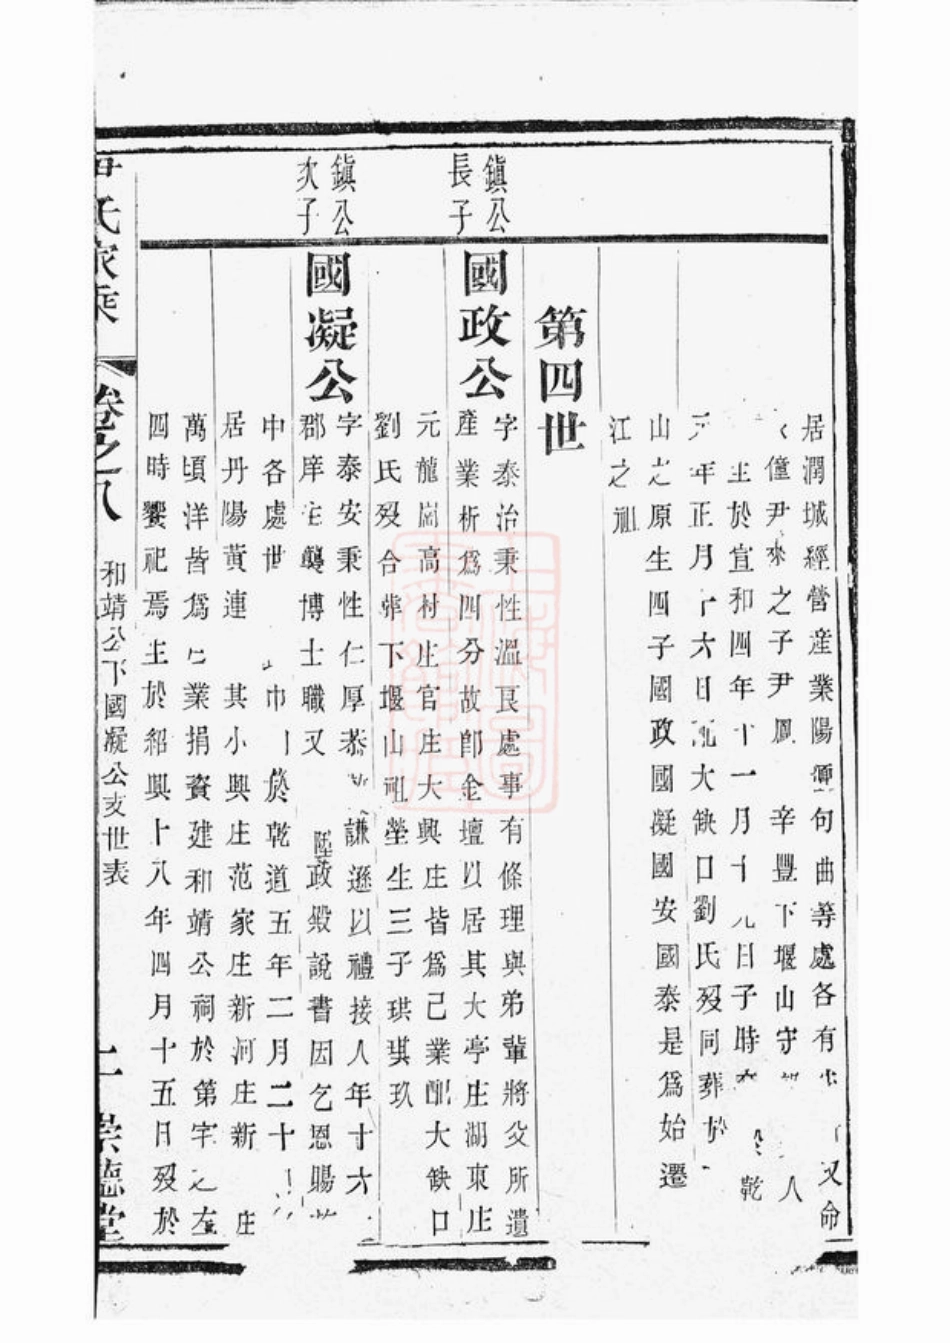 居潤城經營産業陽便句曲等處各有 又命
僮尹來之子尹鳳 辛豐下堰山守 人
生於宣和四年十一月十九日子時 於乾
元年正月十六日 大缺口劉氏歿同葬於
山之原生四子國政國凝國安國泰是爲始遷
江之祖
第四世
鎭公長子
國政公
字泰治秉性溫良處事有條理與弟輩將父所遺
產業析爲四分故卽金壇以居其大亭庄湖東庄
元龍崗高村庄官庄大興庄皆爲己業配大缺口
劉氏歿合葬下堰山祖塋生三子珙琪玖
鎭公次子
國凝公
字泰安秉性仁厚恭 謙遜以禮接人年十六
郡庠生襲博士職又 陞政殿說書因乞恩賜
中各處世 巾 於乾道五年二月二十
居丹陽黃連 其小興庄范家庄新河庄新 庄
萬頃洋皆爲己業捐資建和靖公祠於第宅之左
四時饗祀焉生於紹興十八年四月十五日歿於
尹氏家乘
卷之八
和靖公下國凝公支世表
二
崇德堂